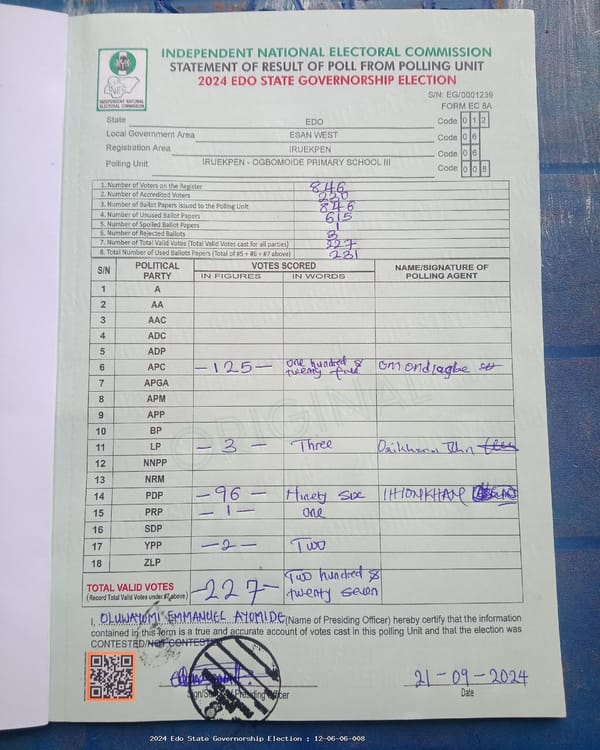 INDEPENDENT NATIONAL ELECTORAL COMMISSION
STATEMENT OF RESULT OF POLL FROM POLLING UNIT
2024 EDO STATE GOVERNORSHIP ELECTION
INEC
INDEPENDENT NATIONAL ELECTORAL COMMISSION
S/N: EG/0001239
FORM EC 8A
State EDO Code 0 1 2
Local Government Area ESAN WEST Code 0 6
Registration Area IRUEKPEN Code 0 6
Polling Unit IRUEKPEN - OGBOMOIDE PRIMARY SCHOOL III Code 0 0 8
1. Number of Voters on the Register 846
2. Number of Accredited Voters 230
3. Number of Ballot Papers Issued to the Polling Unit 846
4. Number of Unused Ballot Papers 615
5. Number of Spoiled Ballot Papers 1
6. Number of Rejected Ballots 3
7. Number of Total Valid Votes (Total Valid Votes cast for all parties) 227
8. Total Number of Used Ballots Papers (Total of #5 + #6 + #7 above) 231
S/N POLITICAL PARTY VOTES SCORED NAME/SIGNATURE OF POLLING AGENT
IN FIGURES IN WORDS
1 A
2 AA
3 AAC
4 ADC
5 ADP
6 APC -125- one hundred & twenty five
7 APGA
8 APM
9 APP
10 BP
11 LP - 3 - Three
12 NNPP
13 NRM
14 PDP -96- Ninety Six IHONKHAN
15 PRP -1- one
16 SDP
17 YPP -2- Two
18 ZLP
TOTAL VALID VOTES -227- Two hundred & twenty seven
(Record Total Valid Votes under #7 above)
ORIGINAL
I, OLUWAYOMI EMMANUEL AYOMIDE (Name of Presiding Officer) hereby certify that the information
contained in this form is a true and accurate account of votes cast in this polling Unit and that the election was
CONTESTED/NOT CONTESTED
Sign/Stamp of Presiding Officer
21-09-2024
Date
2024 Edo State Governorship Election : 12-06-06-008